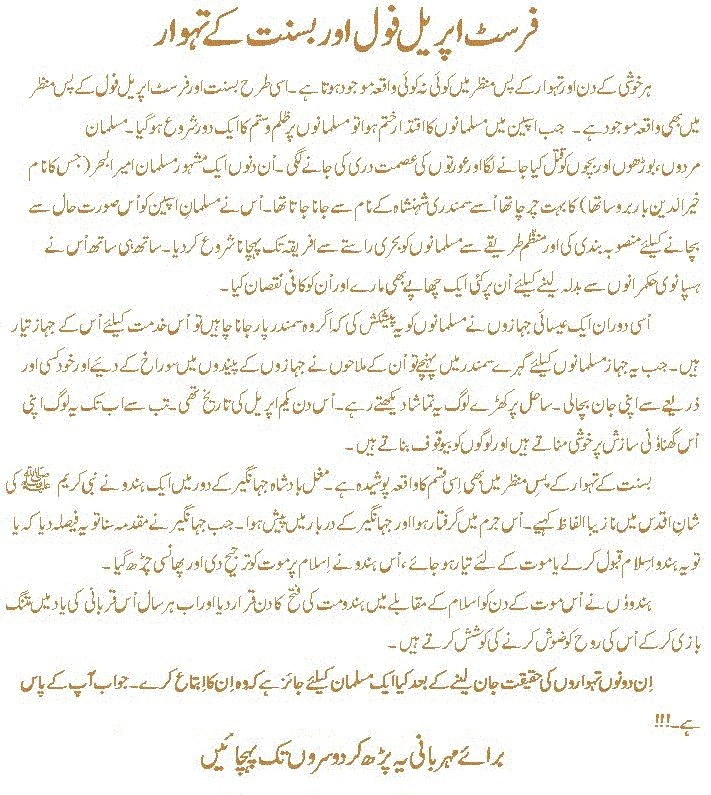 فرسٹ اپریل فول اور بسنت کے تہوار
ہر خوشی کے دن اور تہوار کے پس منظر میں کوئی نہ کوئی واقعہ موجود ہوتا ہے۔ اسی طرح بسنت اور فرسٹ اپریل فول کے پس منظر
میں بھی واقعہ موجود ہے۔ جب اسپین میں مسلمانوں کا اقتدار ختم ہوا تو مسلمانوں پر ظلم و ستم کا ایک دور شروع ہوگیا۔ مسلمان
مردوں، بوڑھوں اور بچوں کو قتل کیا جانے لگا اور عورتوں کی عصمت دری کی جانے لگی۔ اُن دنوں ایک مشہور مسلمان امیر البحر (جس کا نام
خیر الدین باربروسا تھا) کا بہت چرچا تھا اُسے سمندری شہنشاہ کے نام سے جانا جاتا تھا۔ اُس نے مسلمانِ اسپین کو اُس صورت حال سے
بچانے کیلئے منصوبہ بندی کی اور منظّم طریقے سے مسلمانوں کو بحری راستے سے افریقہ تک پہچانا شروع کر دیا۔ ساتھ ہی ساتھ اُس نے
ہسپانوی حکمرانوں سے بدلہ لینے کیلئے اُن پر کئی ایک چھاپے بھی مارے اور اُن کو کافی نقصان کیا۔
اُسی دوران ایک عیسائی جہازوں نے مسلمانوں کو یہ پیشکش کی کہ اگر وہ سمندر پار جانا چاہیں تو اُس خدمت کیلئے اُس کے جہاز تیار
ہیں۔ جب یہ جہاز مسلمانوں کیلئے گہرے سمندر میں پہنچے تو اُن کے ملاحوں نے جہازوں کے پیندوں میں سوراخ کے دیئے اور خود کسی اور
ذریعے سے اپنی جان بچالی۔ ساحل پر کھڑے لوگ یہ تماشا دیکھتے رہے۔ اُس دن یکم اپریل کی تاریخ تھی۔ تب سے اب تک یہ لوگ اپنی
اُس گھناؤنی سازش پر خوشی مناتے ہیں اور لوگوں کو بیوقوف بناتے ہیں۔
بسنت کے تہوار کے پسِ منظر میں بھی اِسی قسم کا واقعہ پوشیدہ ہے۔ مغل بادشاہ جہانگیر کے دور میں ایک ہندو نے نبی کریم ﷺ کی
شانِ اقدس میں نازیبا الفاظ کہیے۔ اُس جرم میں گرفتار ہوا اور جہانگیر کے دربار میں پیش ہوا۔ جب جہانگیر نے مقدمہ سنا تو یہ فیصلہ دیا کہ یا
تو یہ ہندو اِسلام قبول کرلے یا موت کے لئے تیار ہو جائے، اُس ہندو نے اِسلام پر موت کو ترجیح دی اور پھانسی چڑھ گیا۔
ہندوؤں نے اُس موت کے دن کو اسلام کے مقابلے میں ہندومت کی فتح کا دن قرار دیا اور اب ہر سال اُس قربانی کی یاد میں پتنگ
بازی کر کے اُس کی روح کو خوش کرنے کی کوشش کرتے ہیں۔
اِن دونوں تہواروں کی حقیقت جان لینے کے بعد کیا ایک مسلمان کیلئے جائز ہے کہ وہ اِن کا اِبتاع کرے۔ جواب آپ کے پاس
ہے۔!!!
برائے مہربانی یہ پڑھ کر دوسروں تک پہچائیں